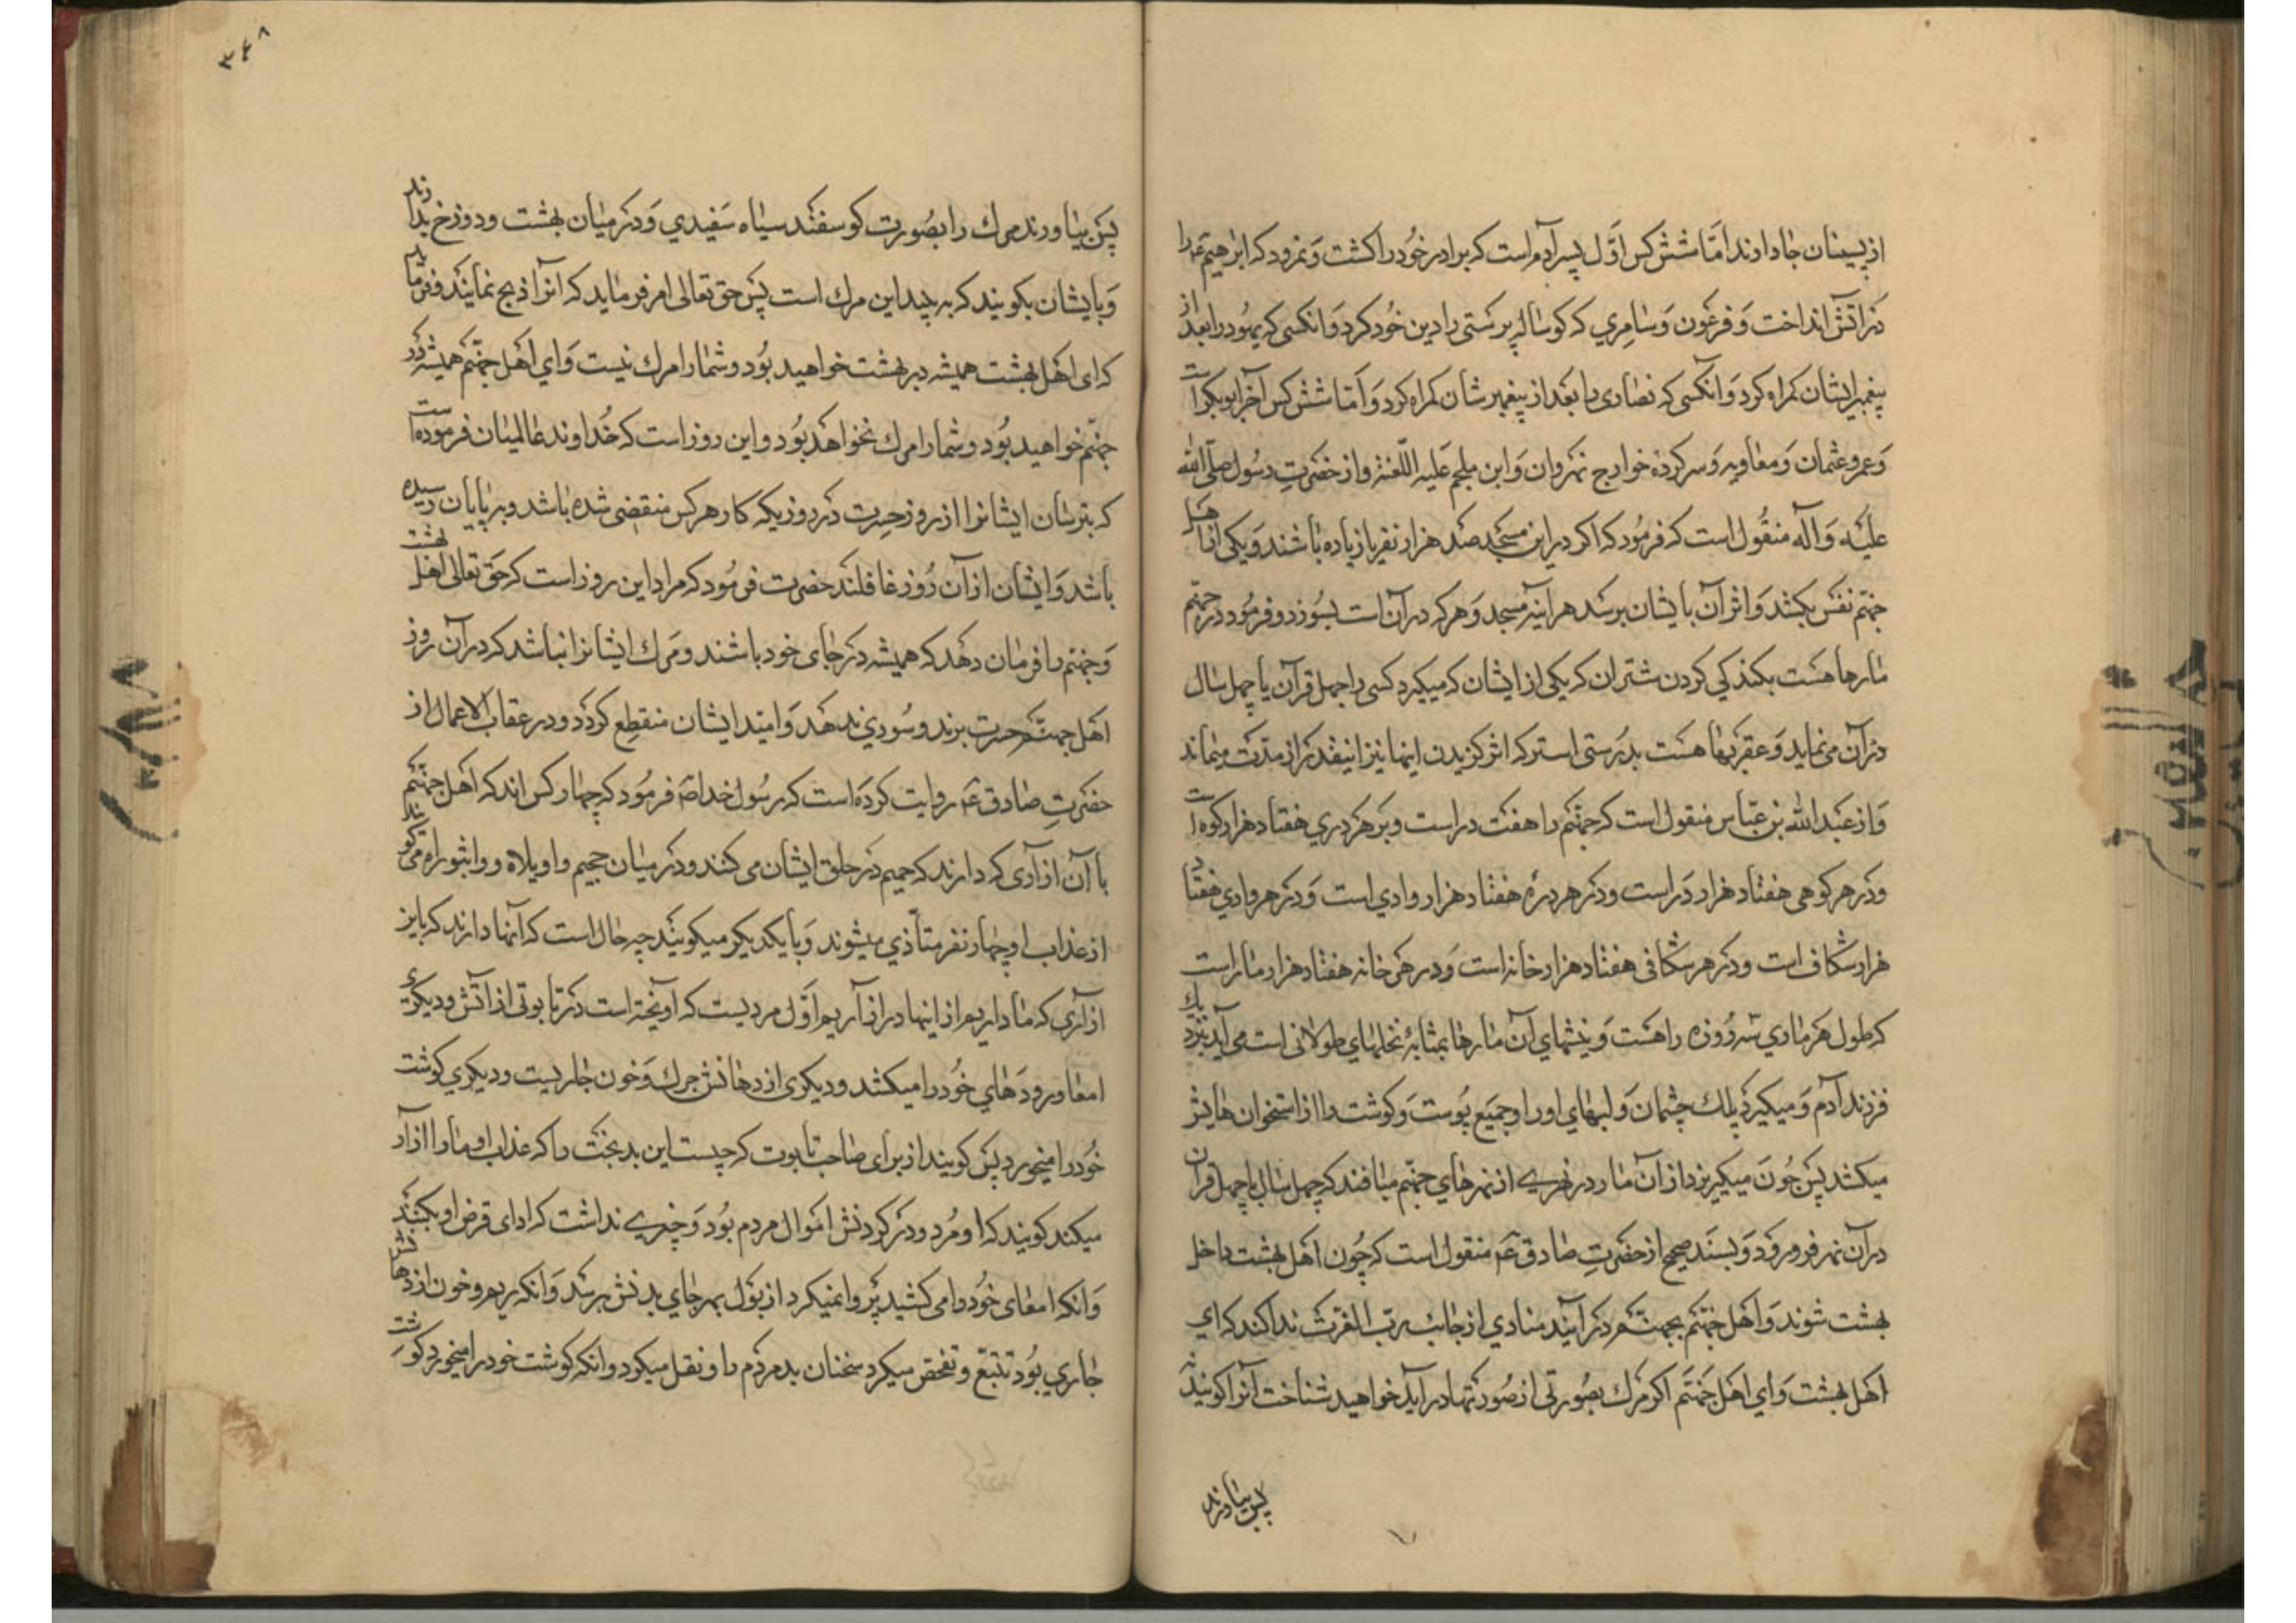 از پسینان جا داوند امّا شش کس اوّل پسر آدم است که برادر خود را کشت و نمرود که ابرهیم ع را
در آتش انداخت و فرعون و سامری که کوساله پرستی را دین خود کرد و انکسی که یهود را بعد از
پیغمبر ایشان کمراه کرد و انکسی که نصاری را بعد از پیغمبرشان کمراه کرد و امّا شش کس آخر ابوبکر است
و عمر و عثمان و معاویه و سرکرده خوارج نهروان و ابن ملجم علیه اللّعنة و از حضرت رسول صلّی الله
علیه و آله منقول است که فرمود که اکر در این مسجد صد هزار نفر یا زیاده باشند و یکی از اهل
جهنّم نفس بکشد و اثر آن بایشان برسد هراینه مسجد و هر که در آن است بسوزد و فرمود در جهنّم
مارها هست بکندکی کردن شتران که یکی از ایشان که میکیرد کسی را چهل قرآن یا چهل سال
در آن می نماید و عقربها هست بدرستی استر که اثر کزیدن اینها نیز اینقدر از مدّت میماند
و از عبدالله بن عبّاس منقول است که جهنّم را هفت در است و بر هر دری هفتاد هزار کوه است
و در هر کوهی هفتاد هزار درّه است و در هر درّه هفتاد هزار وادی است و در هر وادی هفتاد
هزار شکاف است و در هر شکافی هفتاد هزار خانه است و در هر خانه هفتاد هزار مار است
که طول هر ماری سه روزه راهست و نیشهای آن مارها بمثابهٔ نخلهای طولانی است می آید بنزد
فرزند آدم و میکیرد پلک چشمان و لبهای او را و جمیع پوست و کوشت را از استخوان هایش
میکشد پس چون میکریزد از آن مار در نهری از نهرهای جهنّم میافتد که چهل سال یا چهل قرآن
در آن نهر فرو رود و بسند صحیح از حضرت صادق ع منقول است که چون اهل بهشت داخل
بهشت شوند و اهل جهنّم بجهنّم در آیند منادی از جانب ربّ العزّت ندا کند که ای
اهل بهشت و ای اهل جهنّم اکر مرک بصورتی از صورتها در آید خواهید شناخت آنرا کویند نه
پس بیاورند
۳۴۸
پس بیاورند مرک را بصورت کوسفند سیاه سفیدی و در میان بهشت و دوزخ بدارند
و بایشان بکویند که به بینید این مرک است پس حق تعالی امر فرماید که انرا ذبح نمایند و فرماید
که ای اهل بهشت همیشه در بهشت خواهید بود و شما را مرک نیست و ای اهل جهنّم همیشه در
جهنّم خواهید بود و شما را مرک نخواهد بود و این روز است که خداوند عالمیان فرموده است
که بترسان ایشانرا از روز حسرت در روزیکه کار هر کس منقضی شده باشد و به پایان رسیده
باشد و ایشان از آن روز غافلند حضرت فرمود که مراد این روز است که حق تعالی اهل بهشت
و جهنّم را فرمان دهد که همیشه در جای خود باشند و مرک ایشانرا نباشد که در آن روز
اهل جهنّم حسرت برند و سودی ندهد و امّید ایشان منقطع کردد و در عقاب الاعمال از
حضرت صادق ع روایت کرده است که رسول خدا ص فرمود که چهار کس اند که اهل جهنّم
با آن ازآری که دارند که حمیم در حلق ایشان می کنند و در میان جحیم واویلاه و واثبوراه می کویند
از عذاب او چهار نفر متأذی میشوند و با یکدیکر میکویند چه حال است که آنها دارند که باین
ازآری که ما داریم از اینها در ازآریم اوّل مردیست که آویخته است در تابوتی از آتش و دیکری
امعا و رودهای خود را میکشد و دیکری از دهانش چرک و خون جاریست و دیکری کوشت
خود را میخورد پس کویند از برای صاحب تابوت که چیست این بدبخت را که عذاب او ما را ازآر
میکند کویند که او مرد و در کردنش اموال مردم بود و چیزی نداشت که ادای قرض او بکنند
و انکه امعای خود را می کشید پروا نمیکرد از بول بهر جای بدنش برسد و انکه ریم و خون از دهانش
جاری بود تتبّع و تفحّص میکرد سخنان بد مردم را و نقل میکرد و انکه کوشت خود را میخورد کوشت